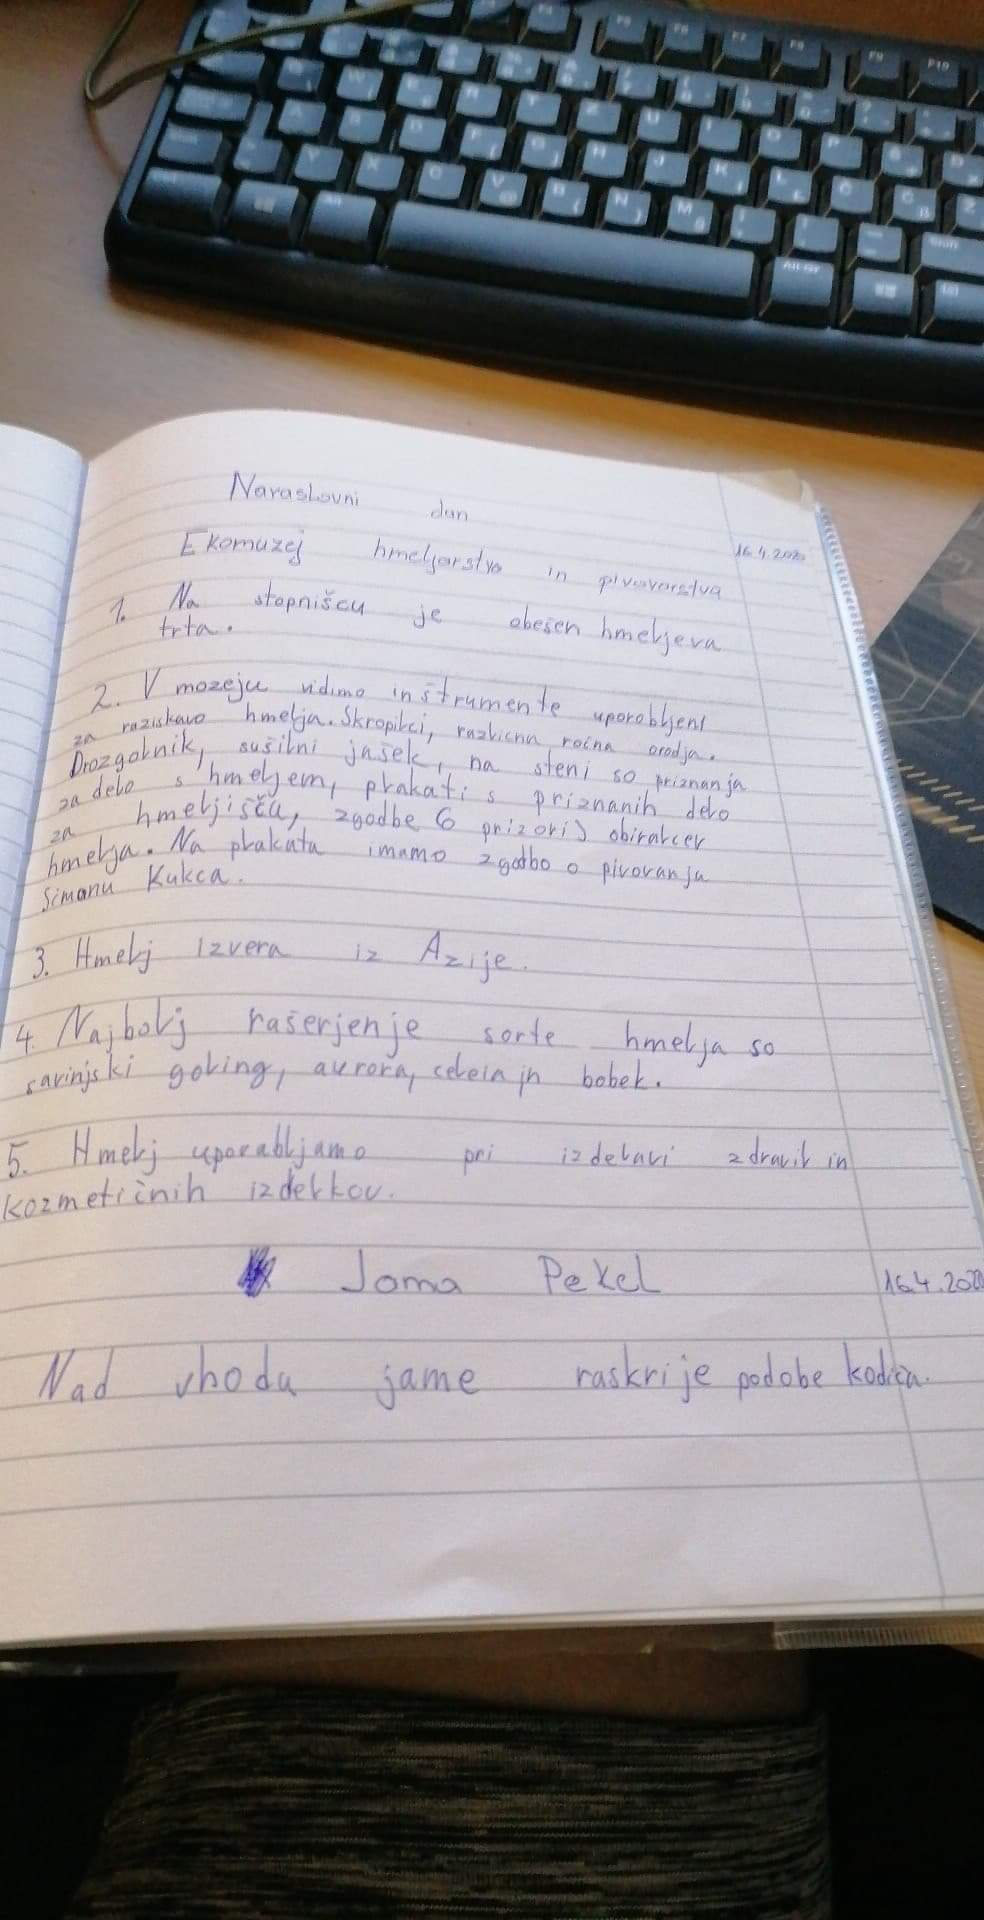 Naraslovni dan
Ekomuzej hmeljarstvo in pivovarstva
16.4.2020
1. Na stopnišcu je obešen hmeljeva
trta.
2. V mozeju vidimo instrumente uporobljeni
za raziskavo hmelja. Skropilci, razlicna rocna orodja.
Drozgolnik, sušilni jašek, na steni so priznanja
za delo s hmeljem, plakati s priznanih delo
za hmeljišča, zgodbe (6 prizori) obiralcev
hmelja. Na plakatu imamo zgodbo o pivovanja
Simonu Kukca.
3. Hmelj izvera iz Azije.
4. Najbolj rašerjenje sorte hmelja so
savinjski goling, aurora, celeia in bobek.
5. Hmelj uporabljamo pri izdelavi zdravil in
kozmetičnih izdelkov.
Jama Pekel
16.4.2020
Nad vhodu jame raskrije podobe kodica.